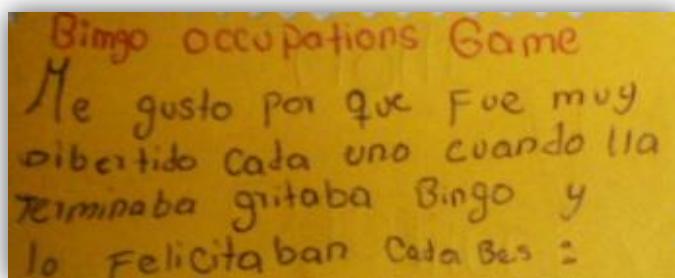 Bimgo occupations Game
Me gusto por que Fue muy
Dibertido cada uno cuando lla
Terminaba gritaba Bingo y
lo Felicitaban Cada Bes :